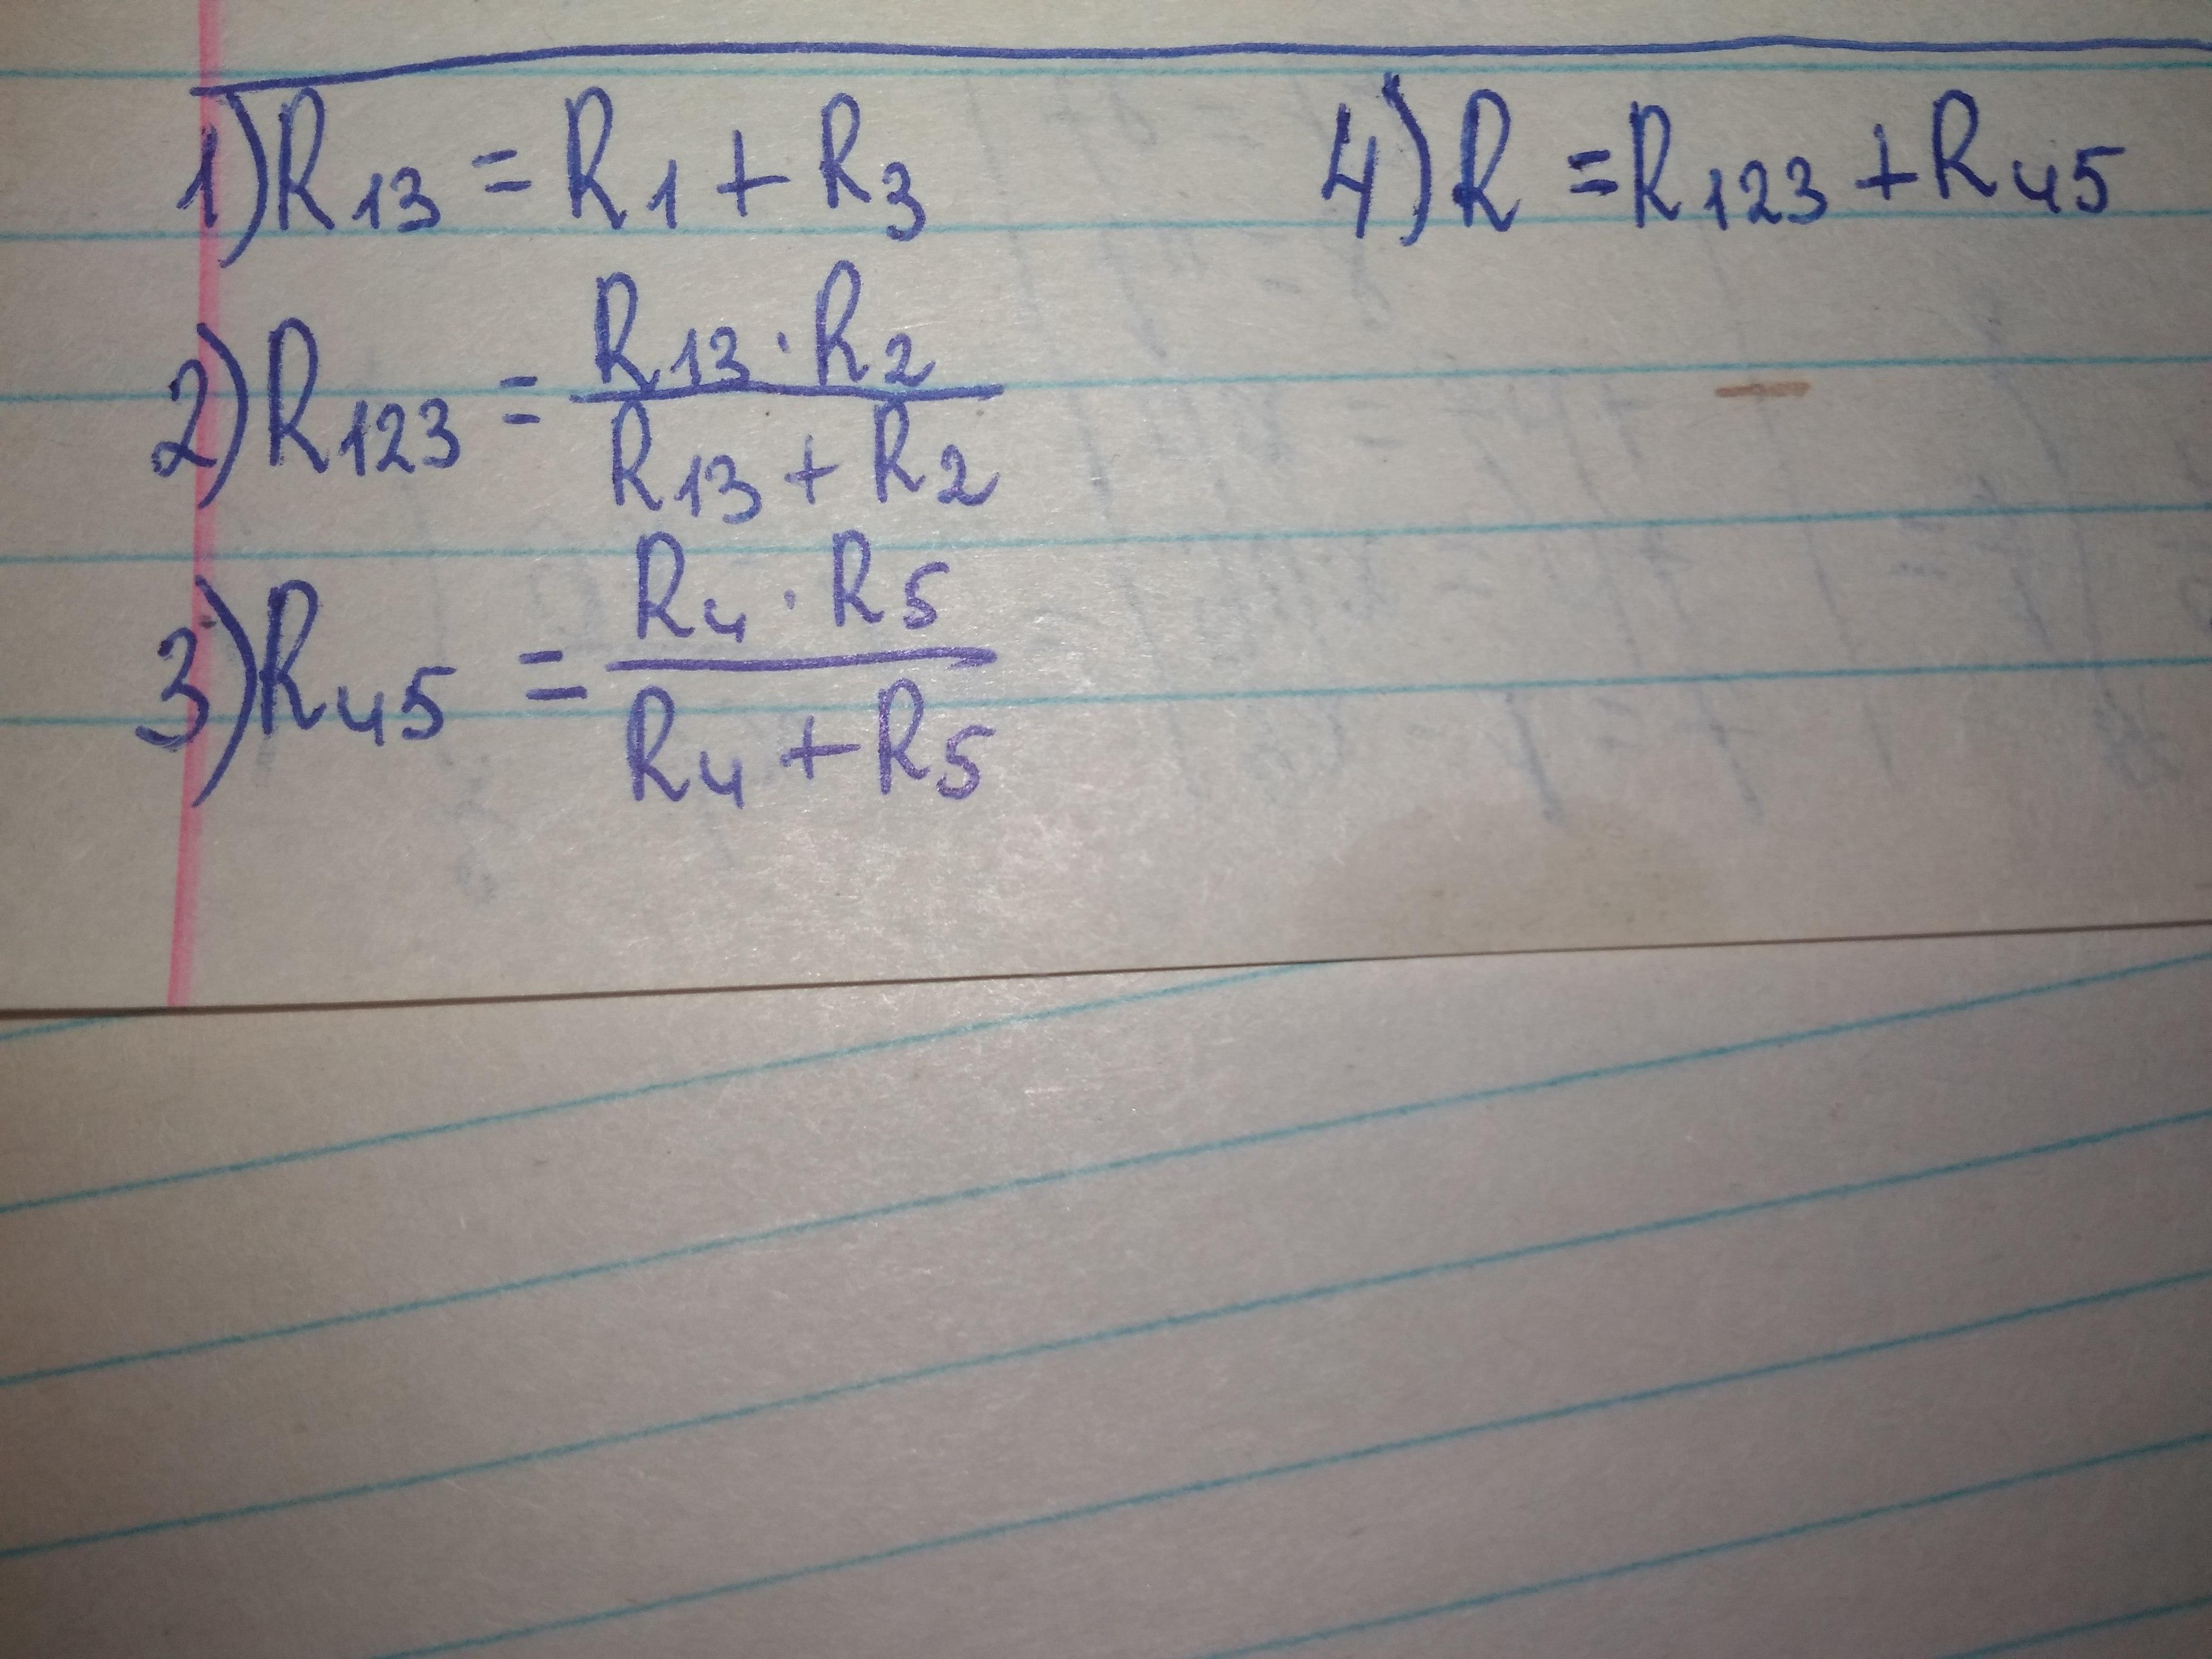 1) R₁₃ = R₁ + R₃
2) R₁₂₃ = (R₁₃ · R₂) / (R₁₃ + R₂)
3) R₄₅ = (R₄ · R₅) / (R₄ + R₅)
4) R = R₁₂₃ + R₄₅